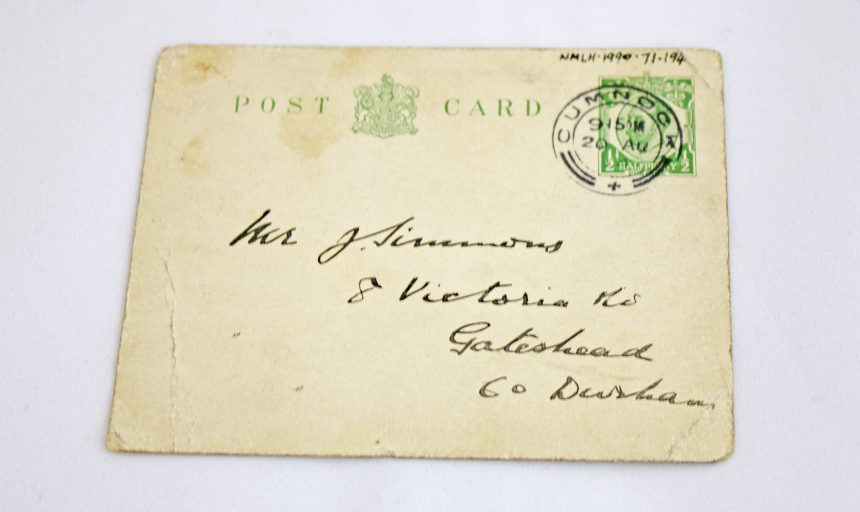 NMLH·1990·71·194
POST CARD
CUMNOCK
915
20 AU
½ HALFPENNY ½
Mr J. Simmons
8 Victoria Rd
Gateshead
Co Durham.